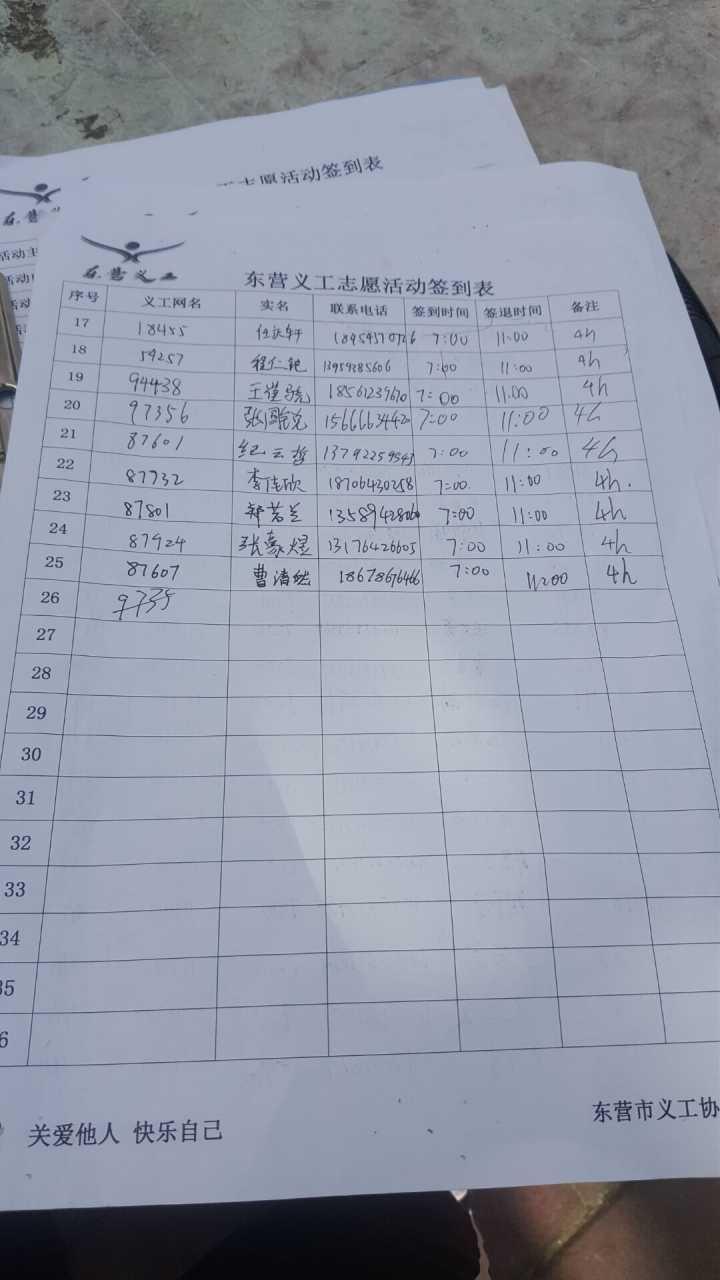 工志愿活动签到表
东营
活动主
活动
活动
东营义工
东营义工志愿活动签到表
序号 义工网名 实名 联系电话 签到时间 签退时间 备注
17 18455 7:00 11:00 4h
18 59257 程仁 7:00 11:00 4h
19 94438 王 18561239670 7:00 11:00 4h
20 97356 张 15666634420 7:00 11:00 4h
21 87601 纪云哲 13792259543 7:00 11:00 4h
22 87732 李佳欣 18706430258 7:00 11:00 4h.
23 87801 郑若兰 7:00 11:00 4h
24 87924 张豪煜 13176426605 7:00 11:00 4h
25 87607 曹清 18678676466 7:00 11:00 4h
26
27
28
29
30
31
32
33
34
35
6
关爱他人 快乐自己
东营市义工协